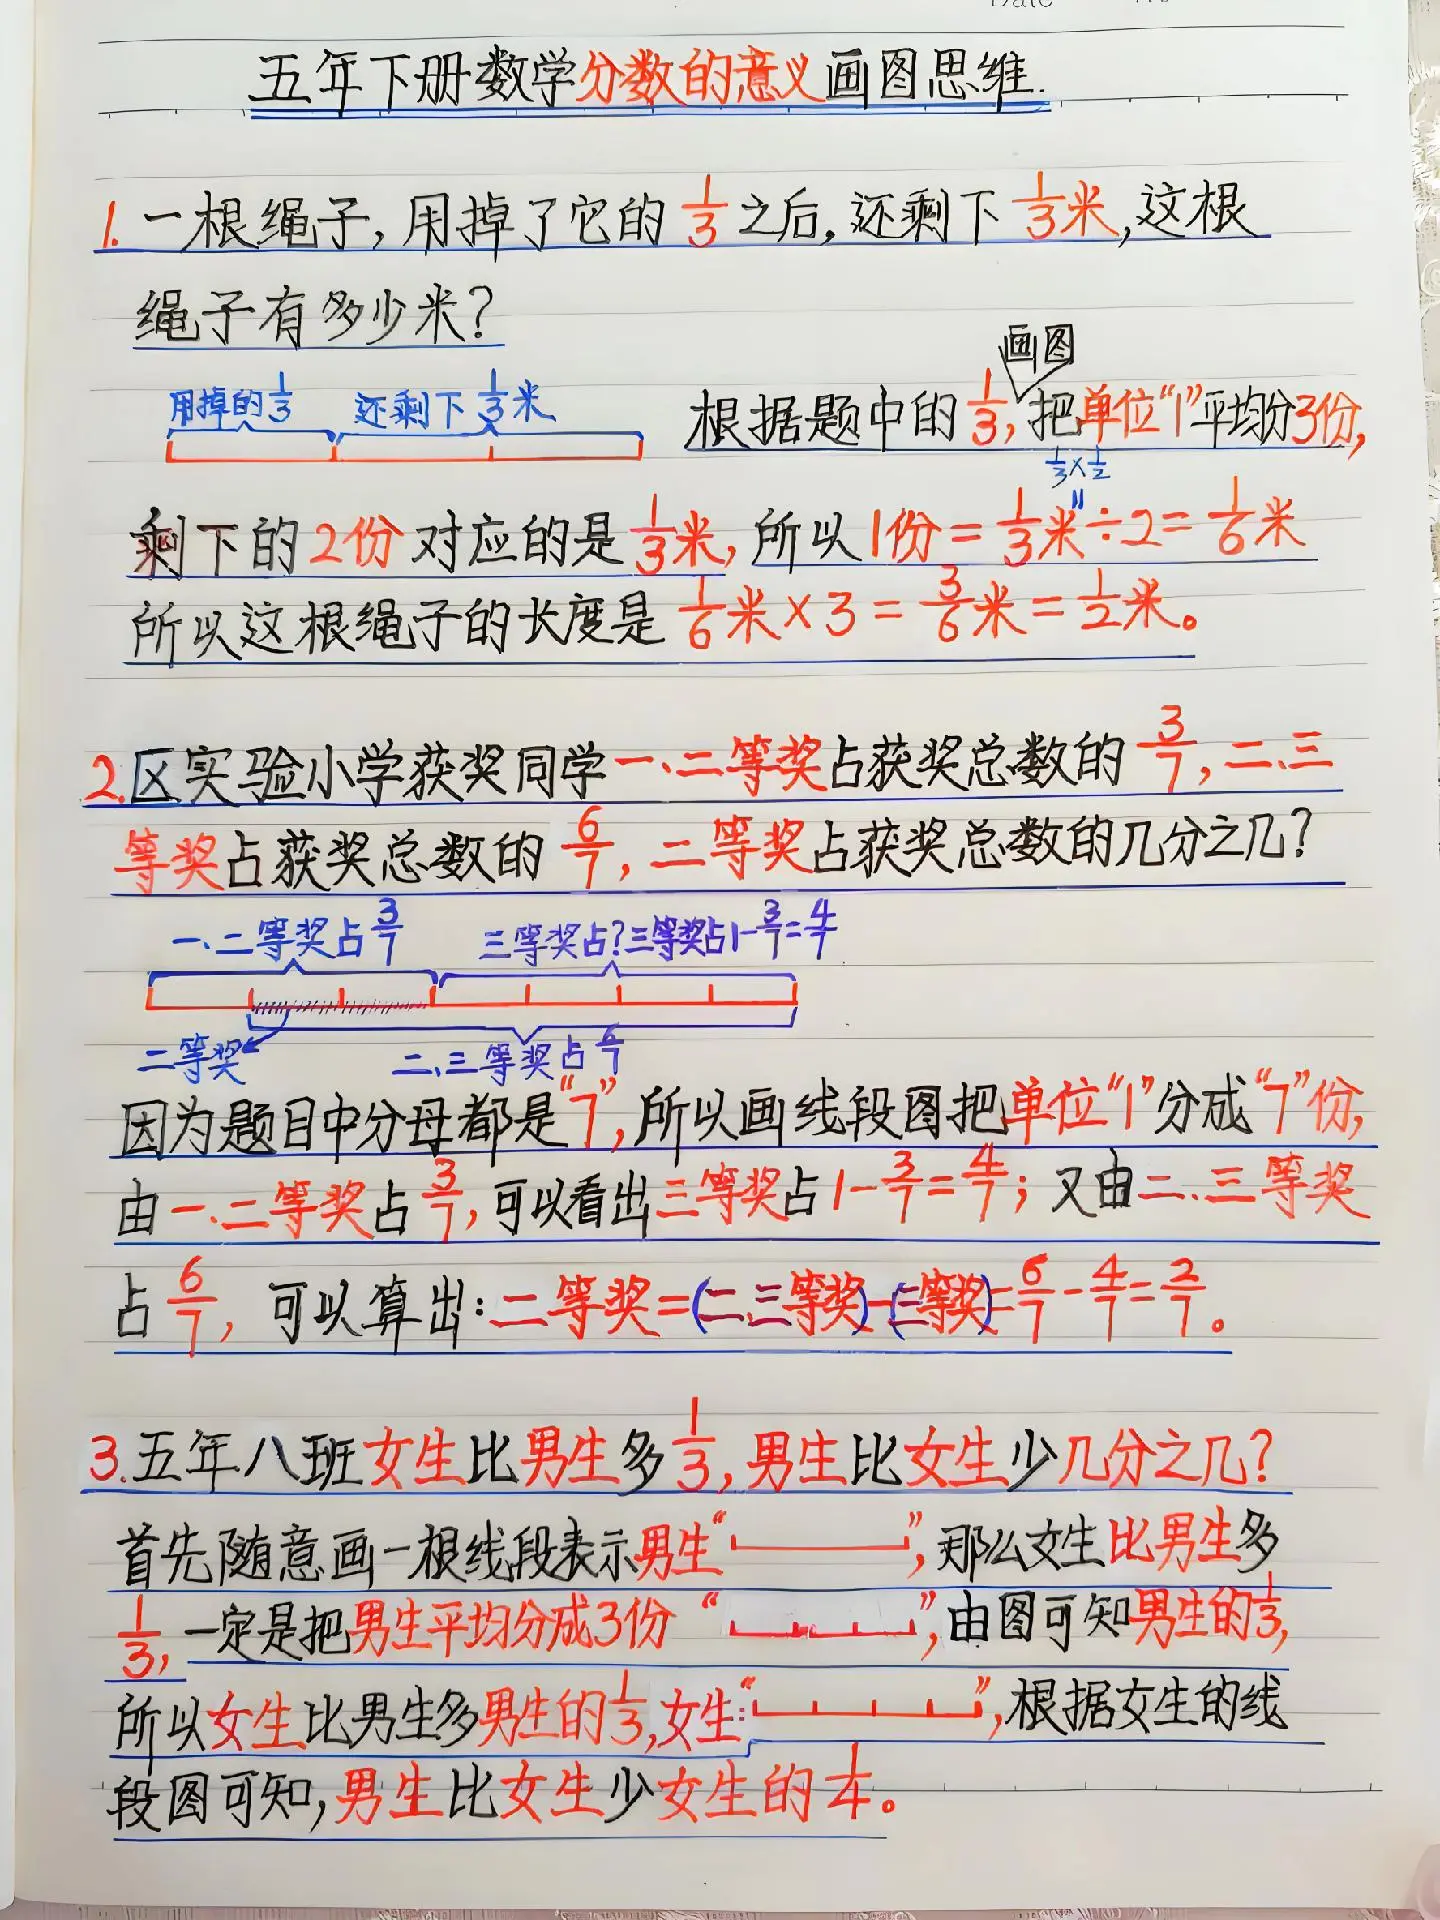 Date
五年下册数学分数的意义画图思维.
1.一根绳子,用掉了它的1/3之后,还剩下1/3米,这根
绳子有多少米?
画图
用掉的1/3 还剩下1/3米
根据题中的1/3,把单位“1”平均分3份,
1/3×1/2
"
剩下的2份对应的是1/3米,所以1份=1/3米÷2=1/6米
所以这根绳子的长度是1/6米×3=3/6米=1/2米。
2.区实验小学获奖同学一、二等奖占获奖总数的3/7,二、三
等奖占获奖总数的6/7,二等奖占获奖总数的几分之几?
一、二等奖占3/7 三等奖占?三等奖占1-3/7=4/7
二等奖 二、三等奖占6/7
因为题目中分母都是“7”,所以画线段图把单位“1”分成“7”份,
由一、二等奖占3/7,可以看出三等奖占1-3/7=4/7;又由二、三等奖
占6/7,可以算出:二等奖=(二、三等奖)-(三等奖)=6/7-4/7=2/7。
3.五年八班女生比男生多1/3,男生比女生少几分之几?
首先随意画一根线段表示男生“ ”,那么女生比男生多
1/3,一定是把男生平均分成3份“ ”,由图可知男生的1/3,
所以女生比男生多男生的1/3,女生:“ ”,根据女生的线
段图可知,男生比女生少女生的1/4。